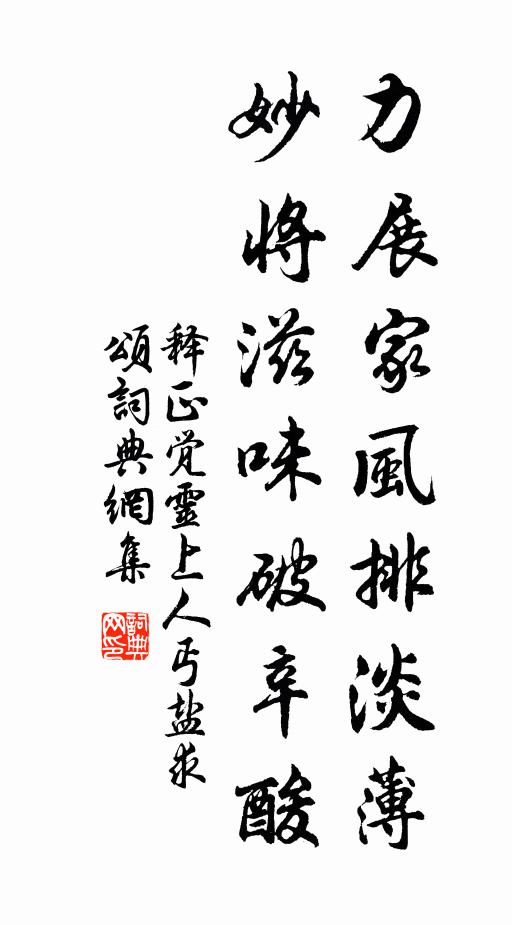 力展家風排淡薄
妙將滋味破辛酸
释正覚靈上人丐盐求
頌詞典網集
詞典
网印